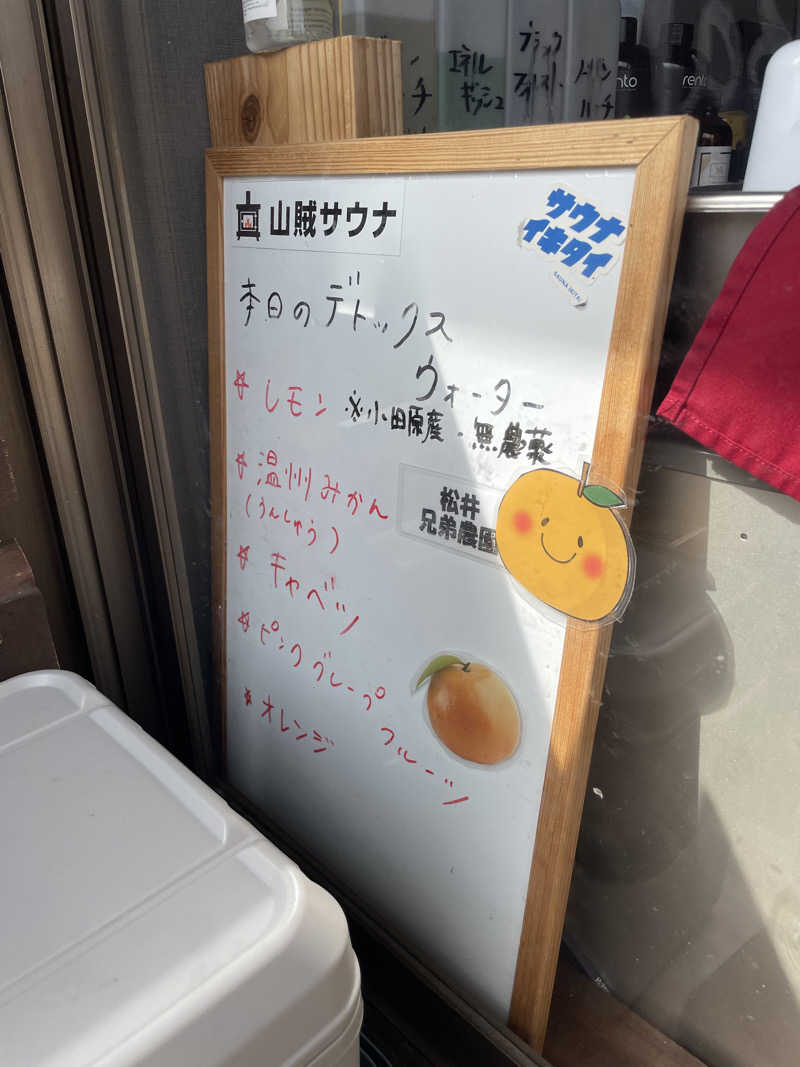 エネル
ギッシュ
ブラック
rento
rento
山賊サウナ
サウナ
イキタイ
SAUNA IKITAI
本日のデトックス
ウォーター
レモン ※小田原産・無農薬
温州みかん
(うんしゅう)
松井
兄弟農園
キャベツ
ピンクグレープ
フルーツ
オレンジ